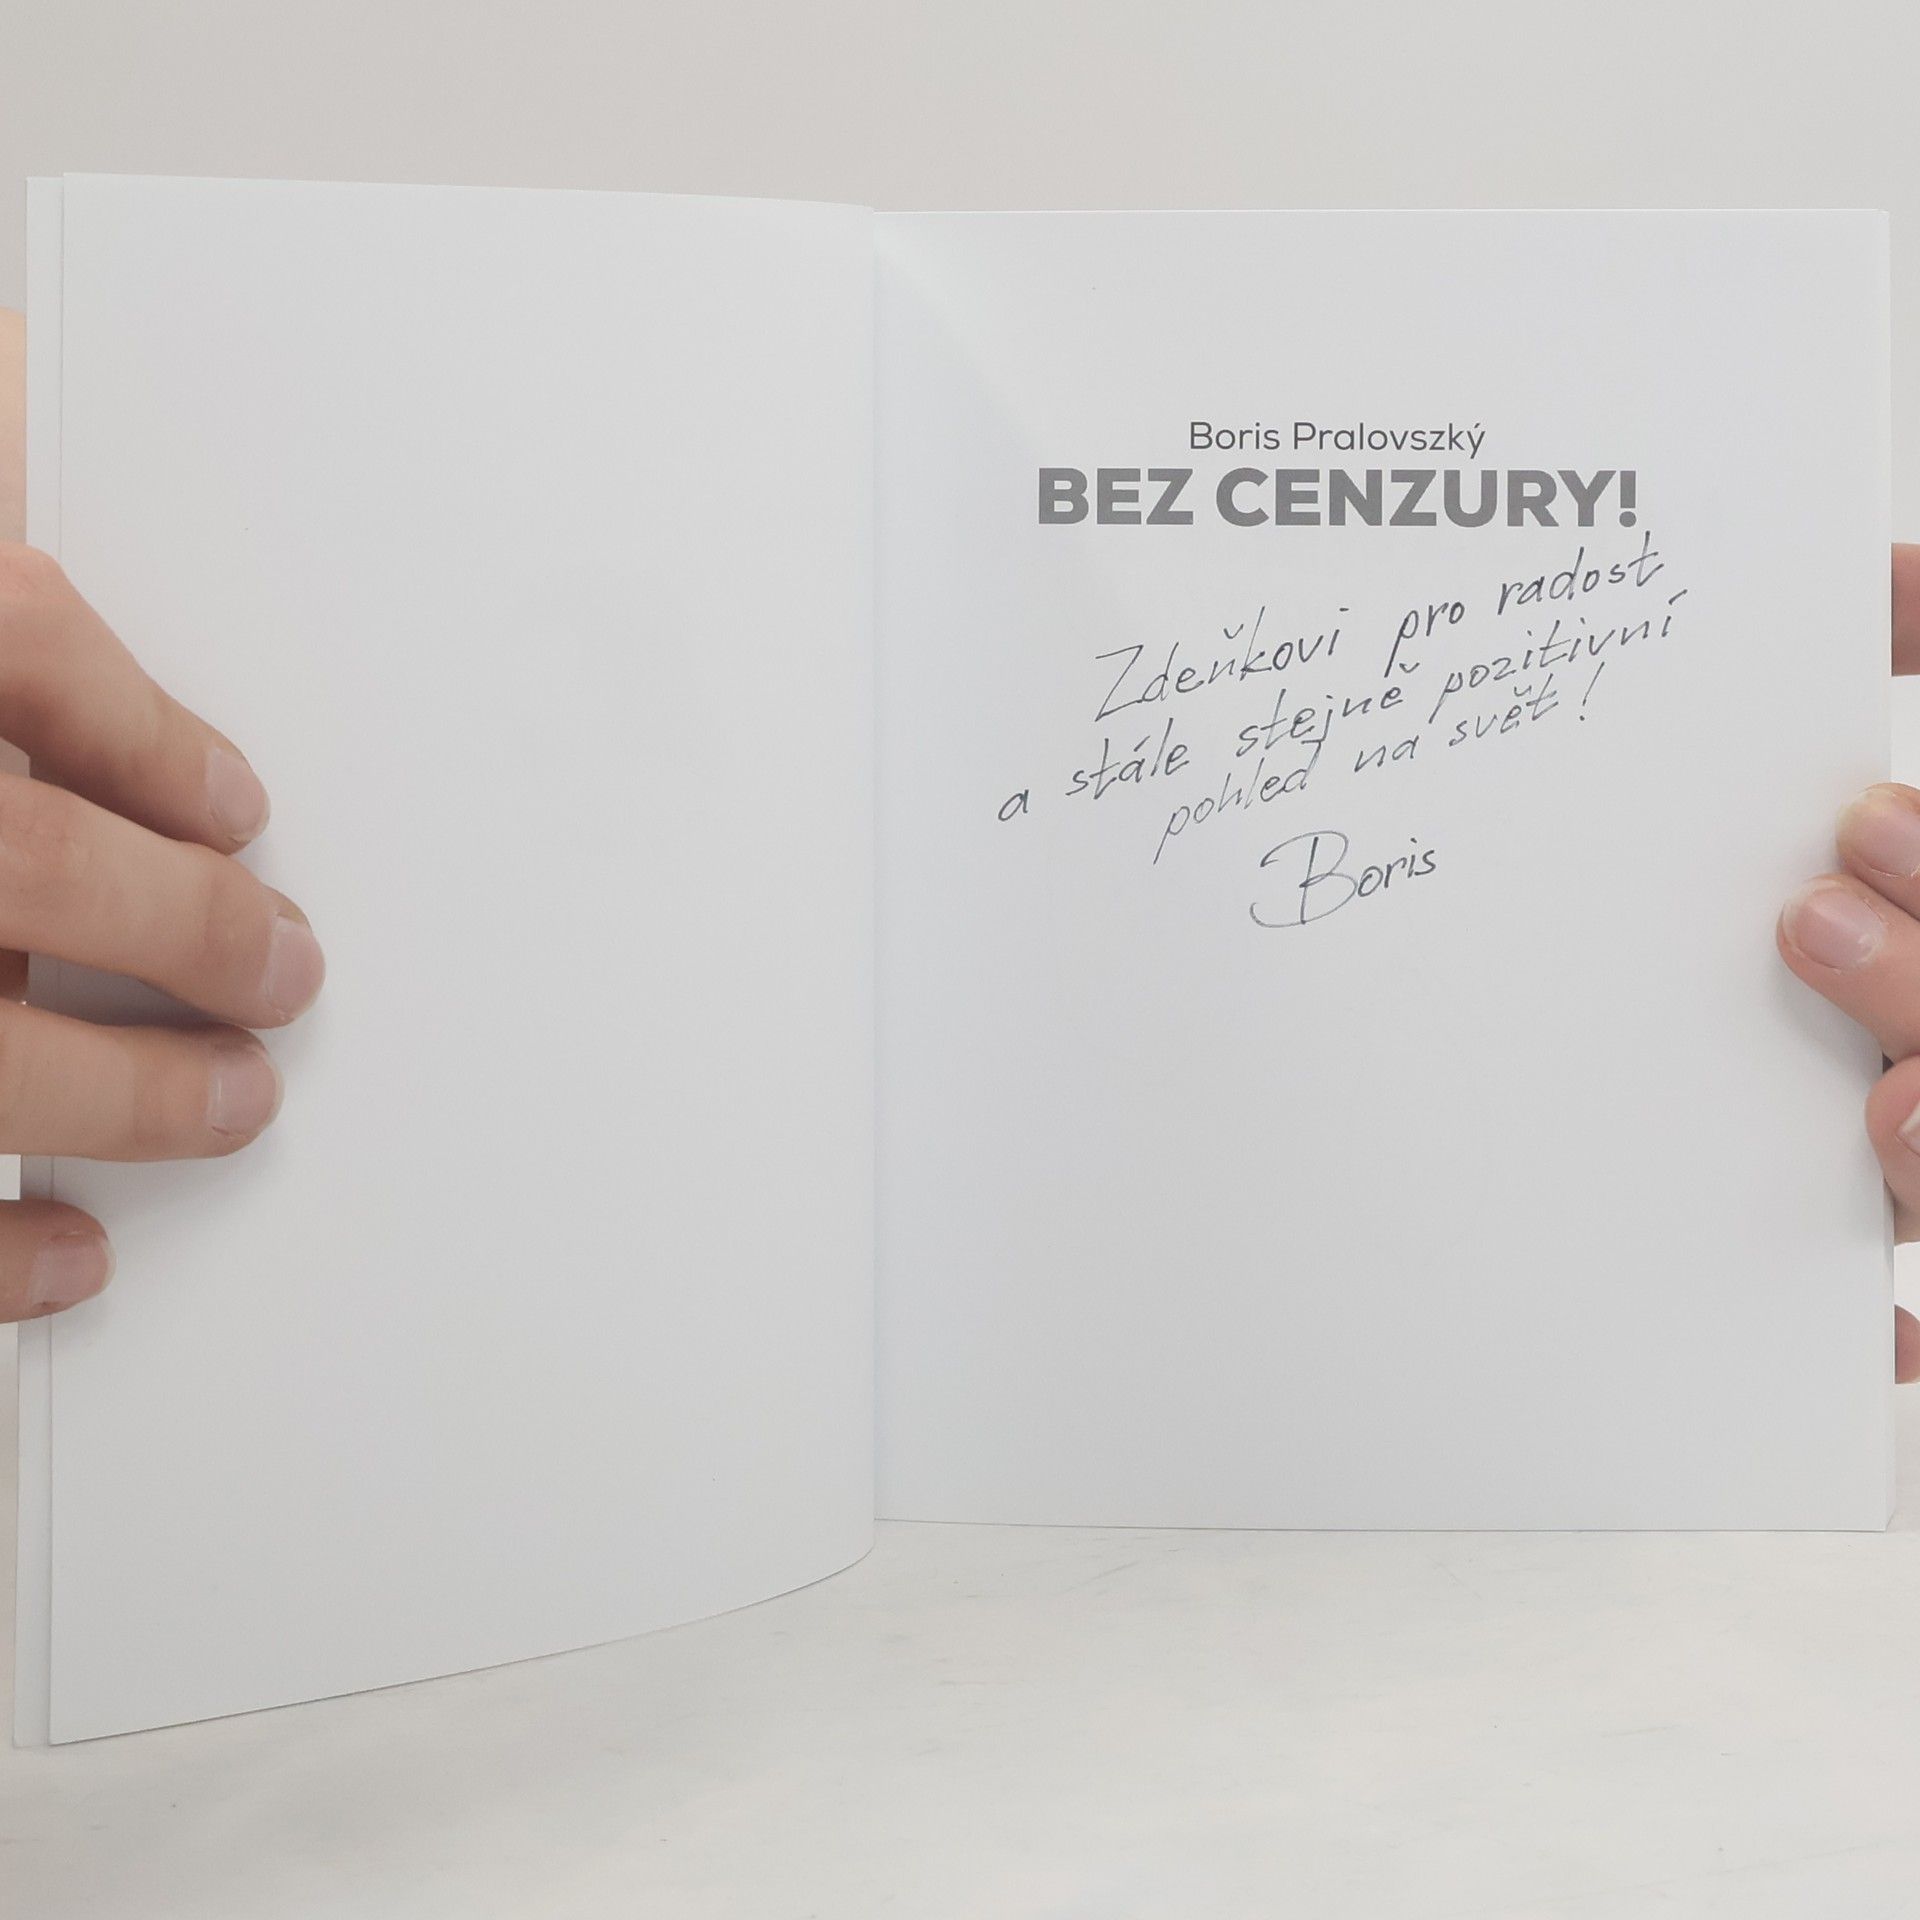 Boris Pralovszký
BEZ CENZURY!
Zdeňkovi pro radost
a stále stejně pozitivní
pohled na svět!
Boris